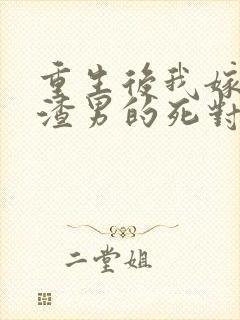 重生後我嫁
渣男的死對
二堂姐